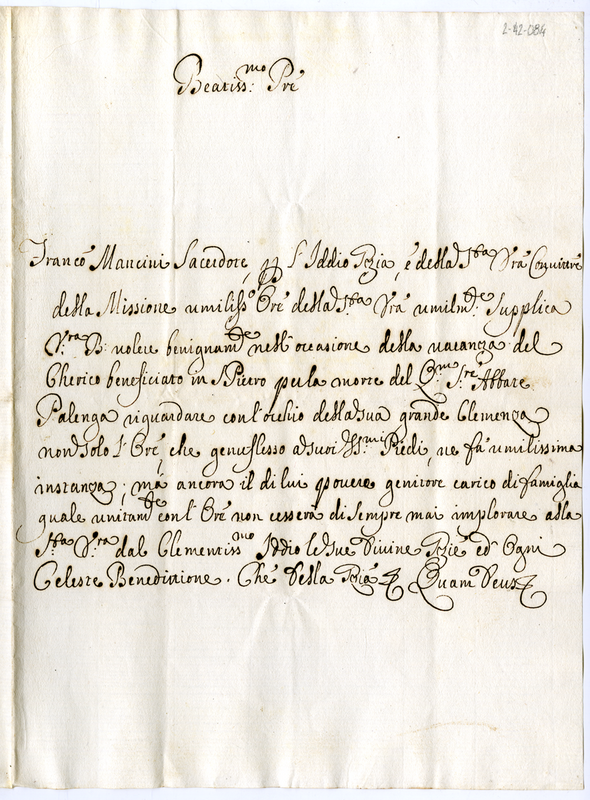 2-12-084
Beatiss:mo Pre
Franco Mancini Sacerdote, p l'Iddio Gzia, e della Sta Vra Convittore
della Missione umiliss:o Ore della Sta Vra umilm:te Supplica
V:ra B: volere benignam:te nell'occasione della vacanza del
Cherico beneficiato in S. Pietro p la morte del Q:m S:re Abbate
Palenga riguardare con l'occhio della Sua grande Clemenza
non solo l'Ore, che genuflesso a suoi SS:mi Piedi, ne fà umilissima
instanza; mà ancora il di lui povero genitore carico di famiglia
quale unitam:te con l'Ore non cesserà di sempre mai implorare alla
S:ta V:ra dal Clementiss:mo Iddio le Sue Divine Gzie ed ogni
Celeste Benedizione. Che Della Gzia & Quam Deus &